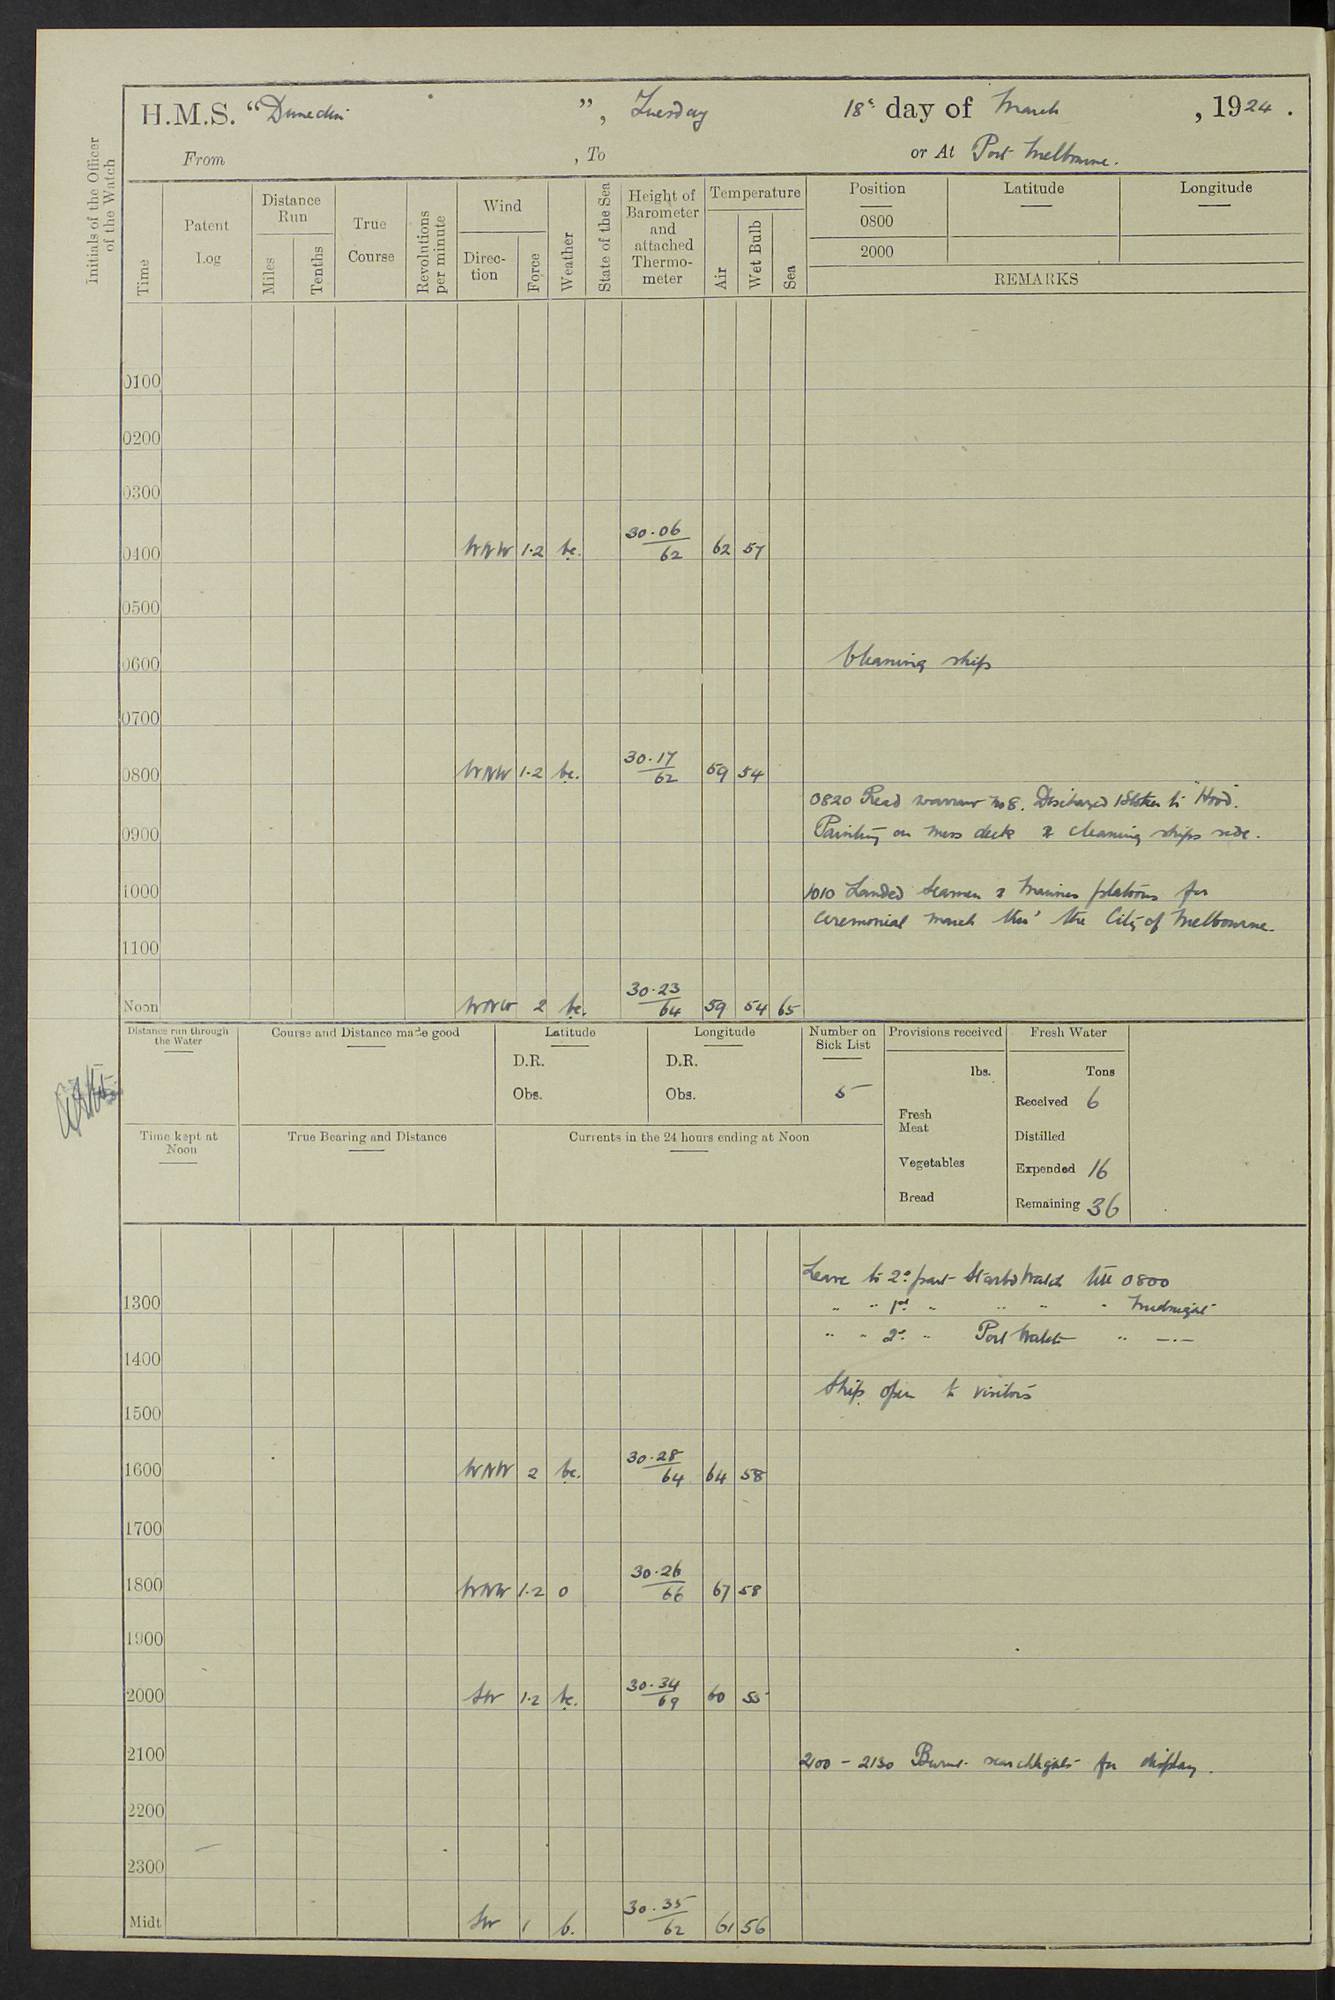 H.M.S. "Dunedin", Tuesday 18th day of March, 1924.
From , To or At Port Melbourne.
Initials of the Officer of the Watch
Time
Patent Log
Distance Run
Miles
Tenths
True Course
Revolutions per minute
Wind
Direc-tion
Force
Weather
State of the Sea
Height of Barometer and attached Thermo-meter
Temperature
Air
Wet Bulb
Sea
Position Latitude Longitude
0800
2000
REMARKS
0100
0200
0300
0400 WNW 1·2 bc. 30·06/62 62 57
0500
0600 Cleaning ship
0700
0800 WNW 1·2 bc. 30·17/62 59 54
0820 Read warrant No 8. Discharged 1 Stoker to "Hood".
0900 Painting on mess deck & cleaning ships side.
1000 1010 Landed Seamen & Marines platoons for
ceremonial march thro' the City of Melbourne.
1100
Noon WNW 2 bc. 30·23/64 59 54 65
Distance run through the Water
Course and Distance made good
Latitude
D.R.
Obs.
Longitude
D.R.
Obs.
Number on Sick List
5
Provisions received
lbs.
Fresh Meat
Vegetables
Bread
Fresh Water
Tons
Received 6
Distilled
Expended 16
Remaining 36
Time kept at Noon
True Bearing and Distance
Currents in the 24 hours ending at Noon
Leave to 2d part Starbd Watch till 0800
1300 " " 1st " " " " Midnight
" " 2d " Port Watch " —·—
1400
Ship open to visitors
1500
1600 WNW 2 bc. 30·28/64 64 58
1700
1800 WNW 1·2 o 30·26/66 67 58
1900
2000 SW 1·2 bc. 30·34/69 60 55
2100 2100 - 2130 Burnt searchlights for display.
2200
2300
Midt SW 1 b. 30·35/62 61 56